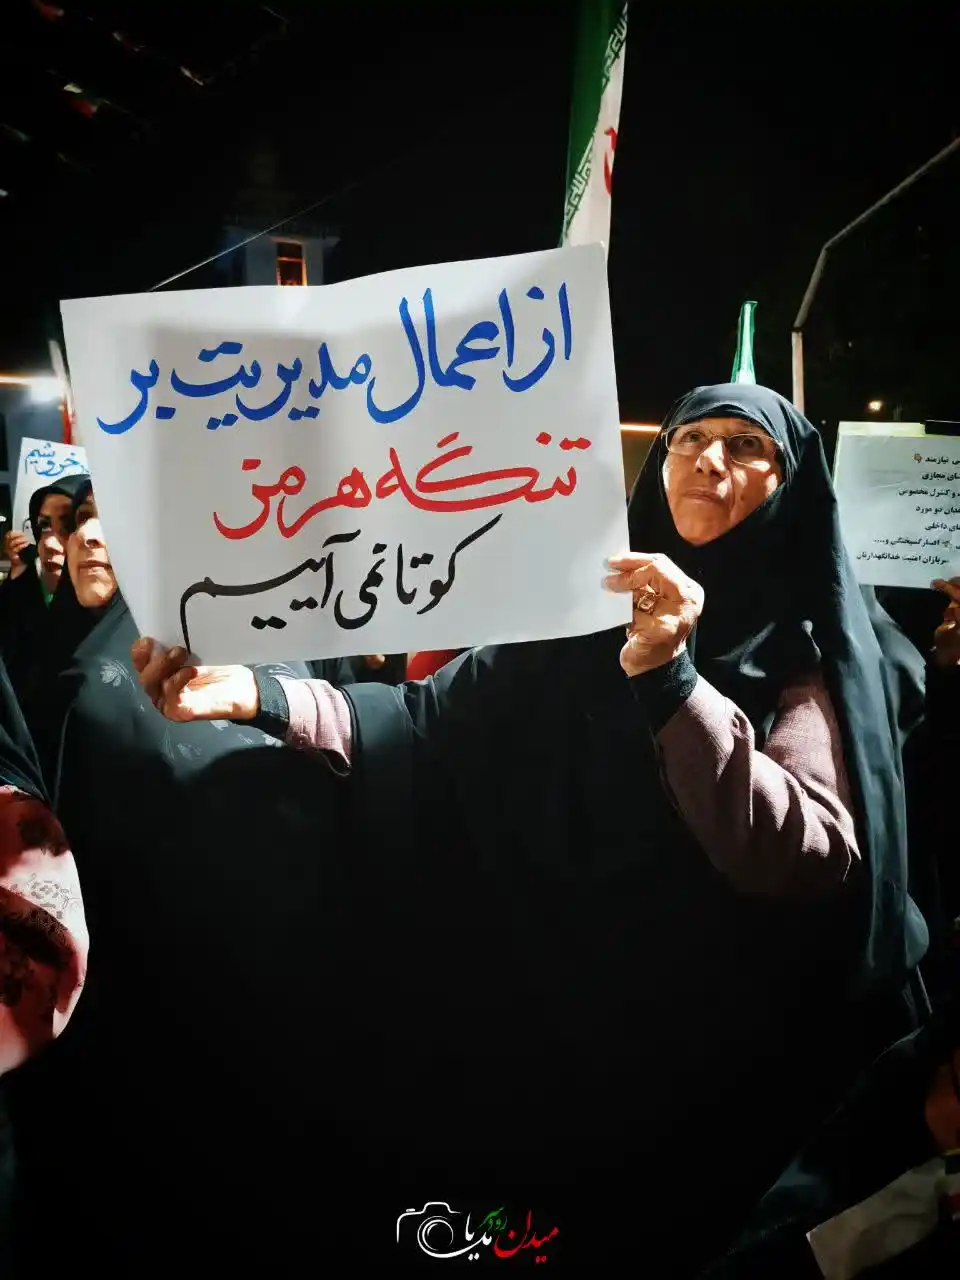 از اعمال مدیریت بر
تنگه هرمز
کوتا نمی آییم
خروشیم
نیازمند
مجازی
و کنترل مخصوص
فقدان دو مورد
های داخلی
افسارگسیختگی و....
سربازان امنیت خدانگهدارتان
میدان رودسر
مدیا